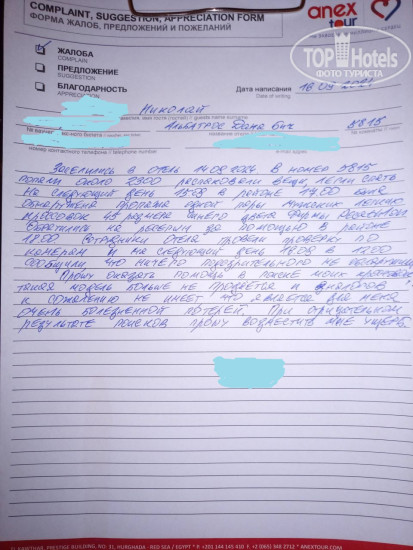 COMPLAINT, SUGGESTION, APPRECIATION FORM
ФОРМА ЖАЛОБ, ПРЕДЛОЖЕНИЙ И ПОЖЕЛАНИЙ
anex
tour
TOPHotels
ФОТО ТУРИСТА
ЖАЛОБА
COMPLAINT
ПРЕДЛОЖЕНИЕ
SUGGESTION
БЛАГОДАРНОСТЬ
APPRECIATION
Дата написания 16 09
Date of writing
Николай
Альбатрос Дана Бич 3815
номер контактного телефона / telephone number
e-mail адрес
Заселились в отель 14.08 в номер 3815
около 2300 распаковали вещи легли спать
На следующий день 15.08 в районе 17.00 была
обнаружена пропажа одной пары мужских
кроссовок 45 размера синего цвета фирмы
Обратились на ресепшн за помощью в районе
1800 Сотрудники отеля провели проверку по
камерам и на следующий день
сообщили что ничего подозрительного не
Прошу оказать помощь в поиске моих кроссовок
такая модель больше не продается и аналогов
к сожалению не имеет что является для меня
очень болезненной потерей. При отрицательном
результате поисков прошу возместить мне ущерб.
PRESTIGE BUILDING, NO: 31, HURGHADA - RED SEA / EGYPT * P. +201 144 145 410 F. +2 (065) 348 2712 * ANEXTOUR.COM